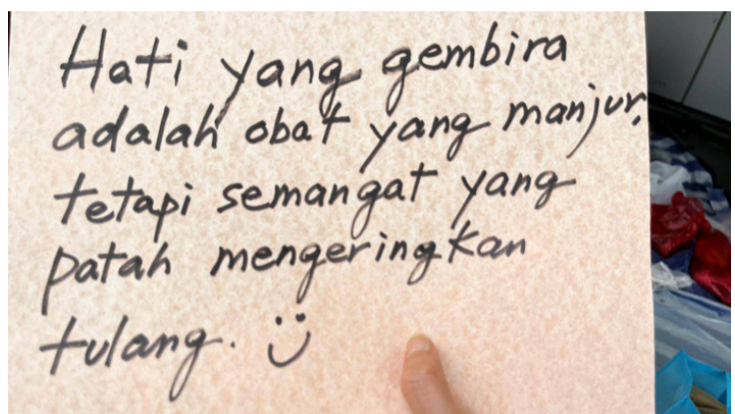 Hati yang gembira
adalah obat yang manjur,
tetapi semangat yang
patah mengeringkan
tulang. :)